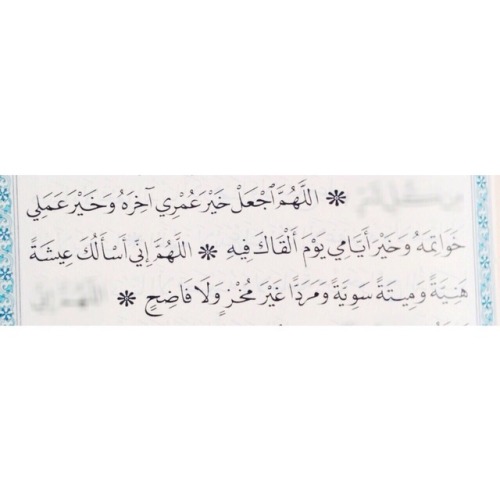 ✻ اللَّهُمَّ ٱجْعَلْ خَيْرَ عُمْرِي آخِرَهُ وَخَيْرَ عَمَلِي
خَوَاتِمَهُ وَخَيْرَ أَيَّامِي يَوْمَ أَلْقَاكَ فِيهِ ✻ اللَّهُمَّ إِنِّي أَسْأَلُكَ عِيشَةً
هَنِيَّةً وَمِيتَةً سَوِيَّةً وَمَرَدًّا غَيْرَ مُخْزٍ وَلَا فَاضِحٍ ✻ اللَّهُمَّ إِنِّي